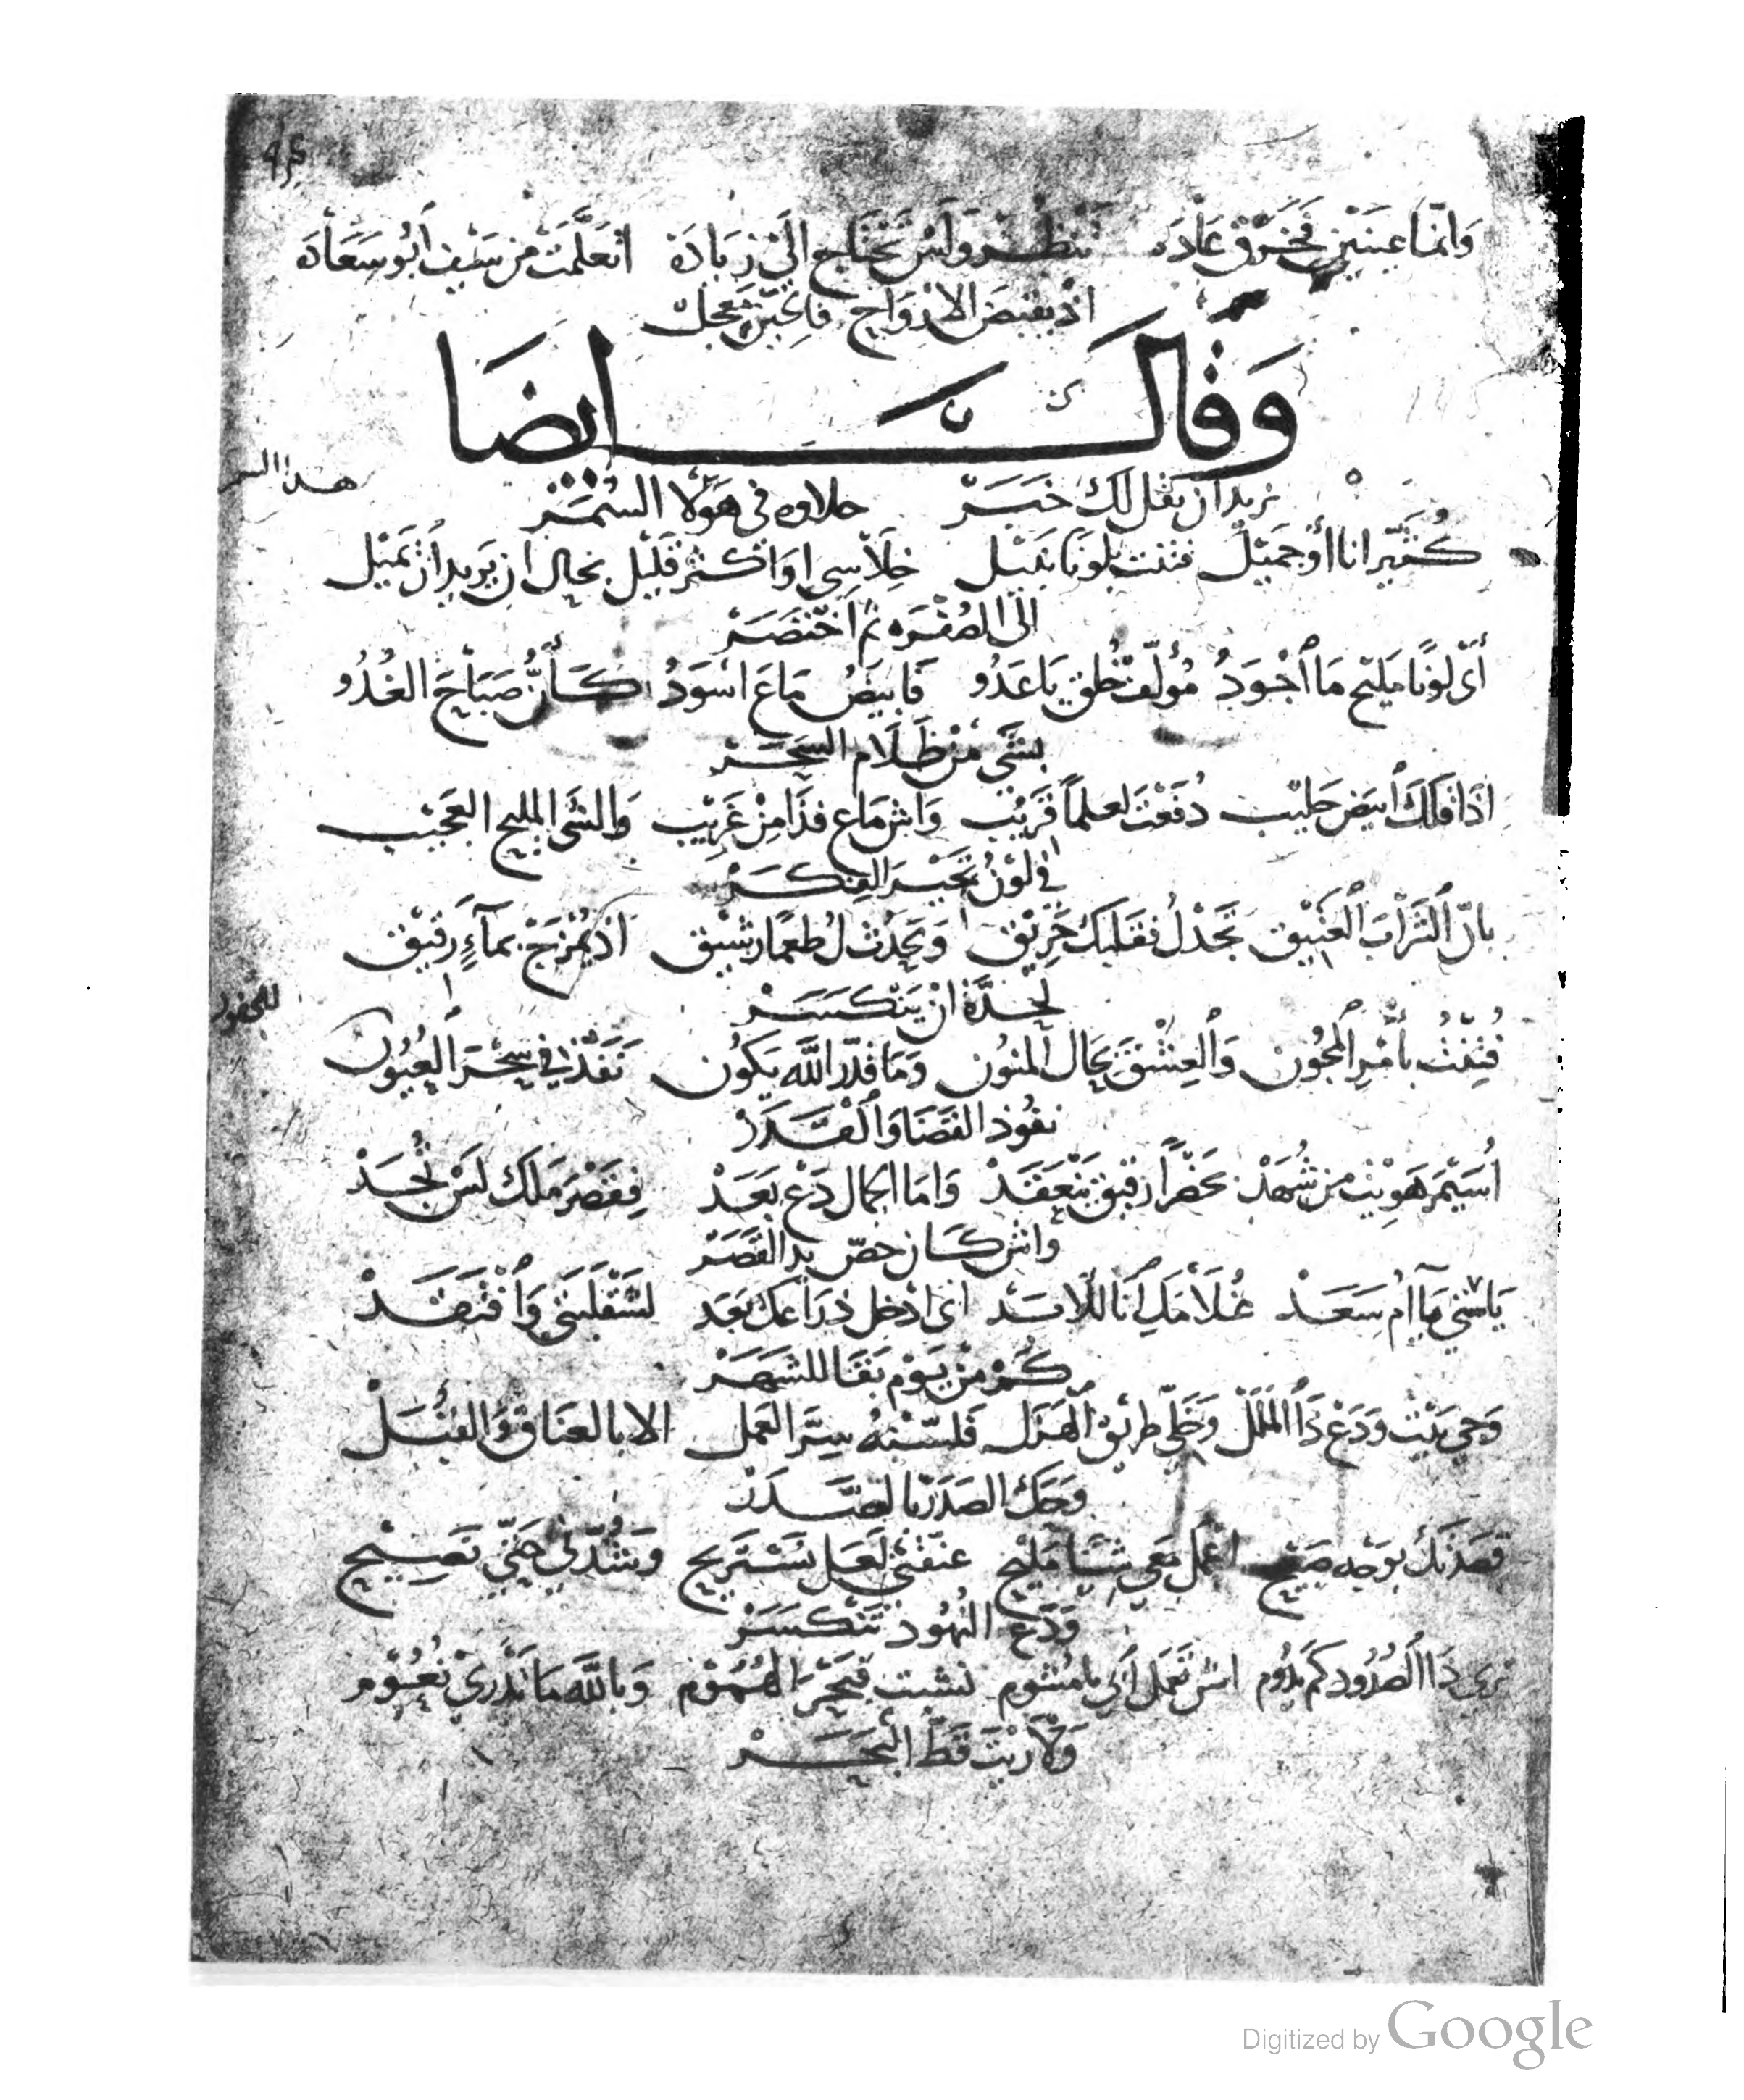 وَانَّمَا عينين فَخَرْق عَادَه تنظر وَلَسْ تَحْتَاج اِلَى زِيَادَة اتعَلَّمَت من سَيْف اَبُو سَعَادَه
اذ يقبض الازواج
وَقَالَ ايضَا
هذا
نريد ان نقل لك خَبَرْ حلاوه فى هَوَلا السُّمَرْ
كُثَيّر انا أَوْ جَمِيْل فتنت بلونًا نَبيْل خِلَاسِى اوَاكثر قليْل بحال ان يَريد ان يَميْل
الى الصُفْرَه ثم اخْتَصَرْ
أىّ لونًا مليح مَا أجْوَدُ مُولّف خُلق يَا عَدُو فَابيَضُ مَاعَ اسْوَدُ كَأنُّ صَبَاحَ الغُدُو
بشَىْ مَنْ ظَلَام السَحَرْ
اذا قلَك أبيَض حَليْب دُفَعْتَ لعلمًا قَريْب وَاش مَاع فذَا منْ غَرِيْب وَالشَى المليح العَجيْب
فى لَوْنُ تَحَيْر الفِكَرْ
بانّ الشَرَابَ العَتِيْق تَجَدْ لُ فقَلبَك حَرِيْق وَتَجدْ لُ طعمًا رشيْق اذ يُمْزجْ بمآءٍ رَقيْق
لحدَّة انْ يَنْكسَرْ
فُتِنْتُ بأَمْرِ المجُون وَالعِشْق بحَال المنُون وَمَا قدّر اللَّه يَكوُن نَفَذْ فى سِحْرَ العُيُون
نفُوذ القَضَا وَالْقَدَرْ
أُسَيْمَر هَوِيْت من شُهَدْ رقيق يَنْعَقَدْ وَامَا الجمال دَعْ بَعَدْ فقَصْر مَلَك لَسْ تُجَدْ
وَاش كان خصّ بد القَصَرْ
يَا ستى يَا اُمْ سَعَدْ غُلَامَك اَنَا للابَد اى ادْخل ذرَاعك بَعَد
كَمْ مِنْ يَوْم بَقَا للشَهَرْ
وَحِىْ بِتْ وَدَعْ ذَا الْمَلَلْ وَخَلِّى طَرِيْق الْهَزَل فَلسّنهُ سِرَّ العَمل الا بالعنَاق وَالقُبَلْ
وَحَك الصَدَرْ بالصَّدَرْ
قصَدْتَك بوَجْه صبيْح اعْمل مَعى شيًا مَليْح عنقنى لَعَل نسْتَريح وَنشُدّلى حَتّى نَصِيْح
وَدَع النُهُود تَنْكسَرْ
ترى ذَا الصُدُود كم يدُوم اش نعْمَل اَنى يا مشُوم نشبت فبَحْر الهُمُوْم وَباللَّه مَا نَدْرىْ نُعُوْم
وَلَا رَيْت قَطّ البَحَرْ